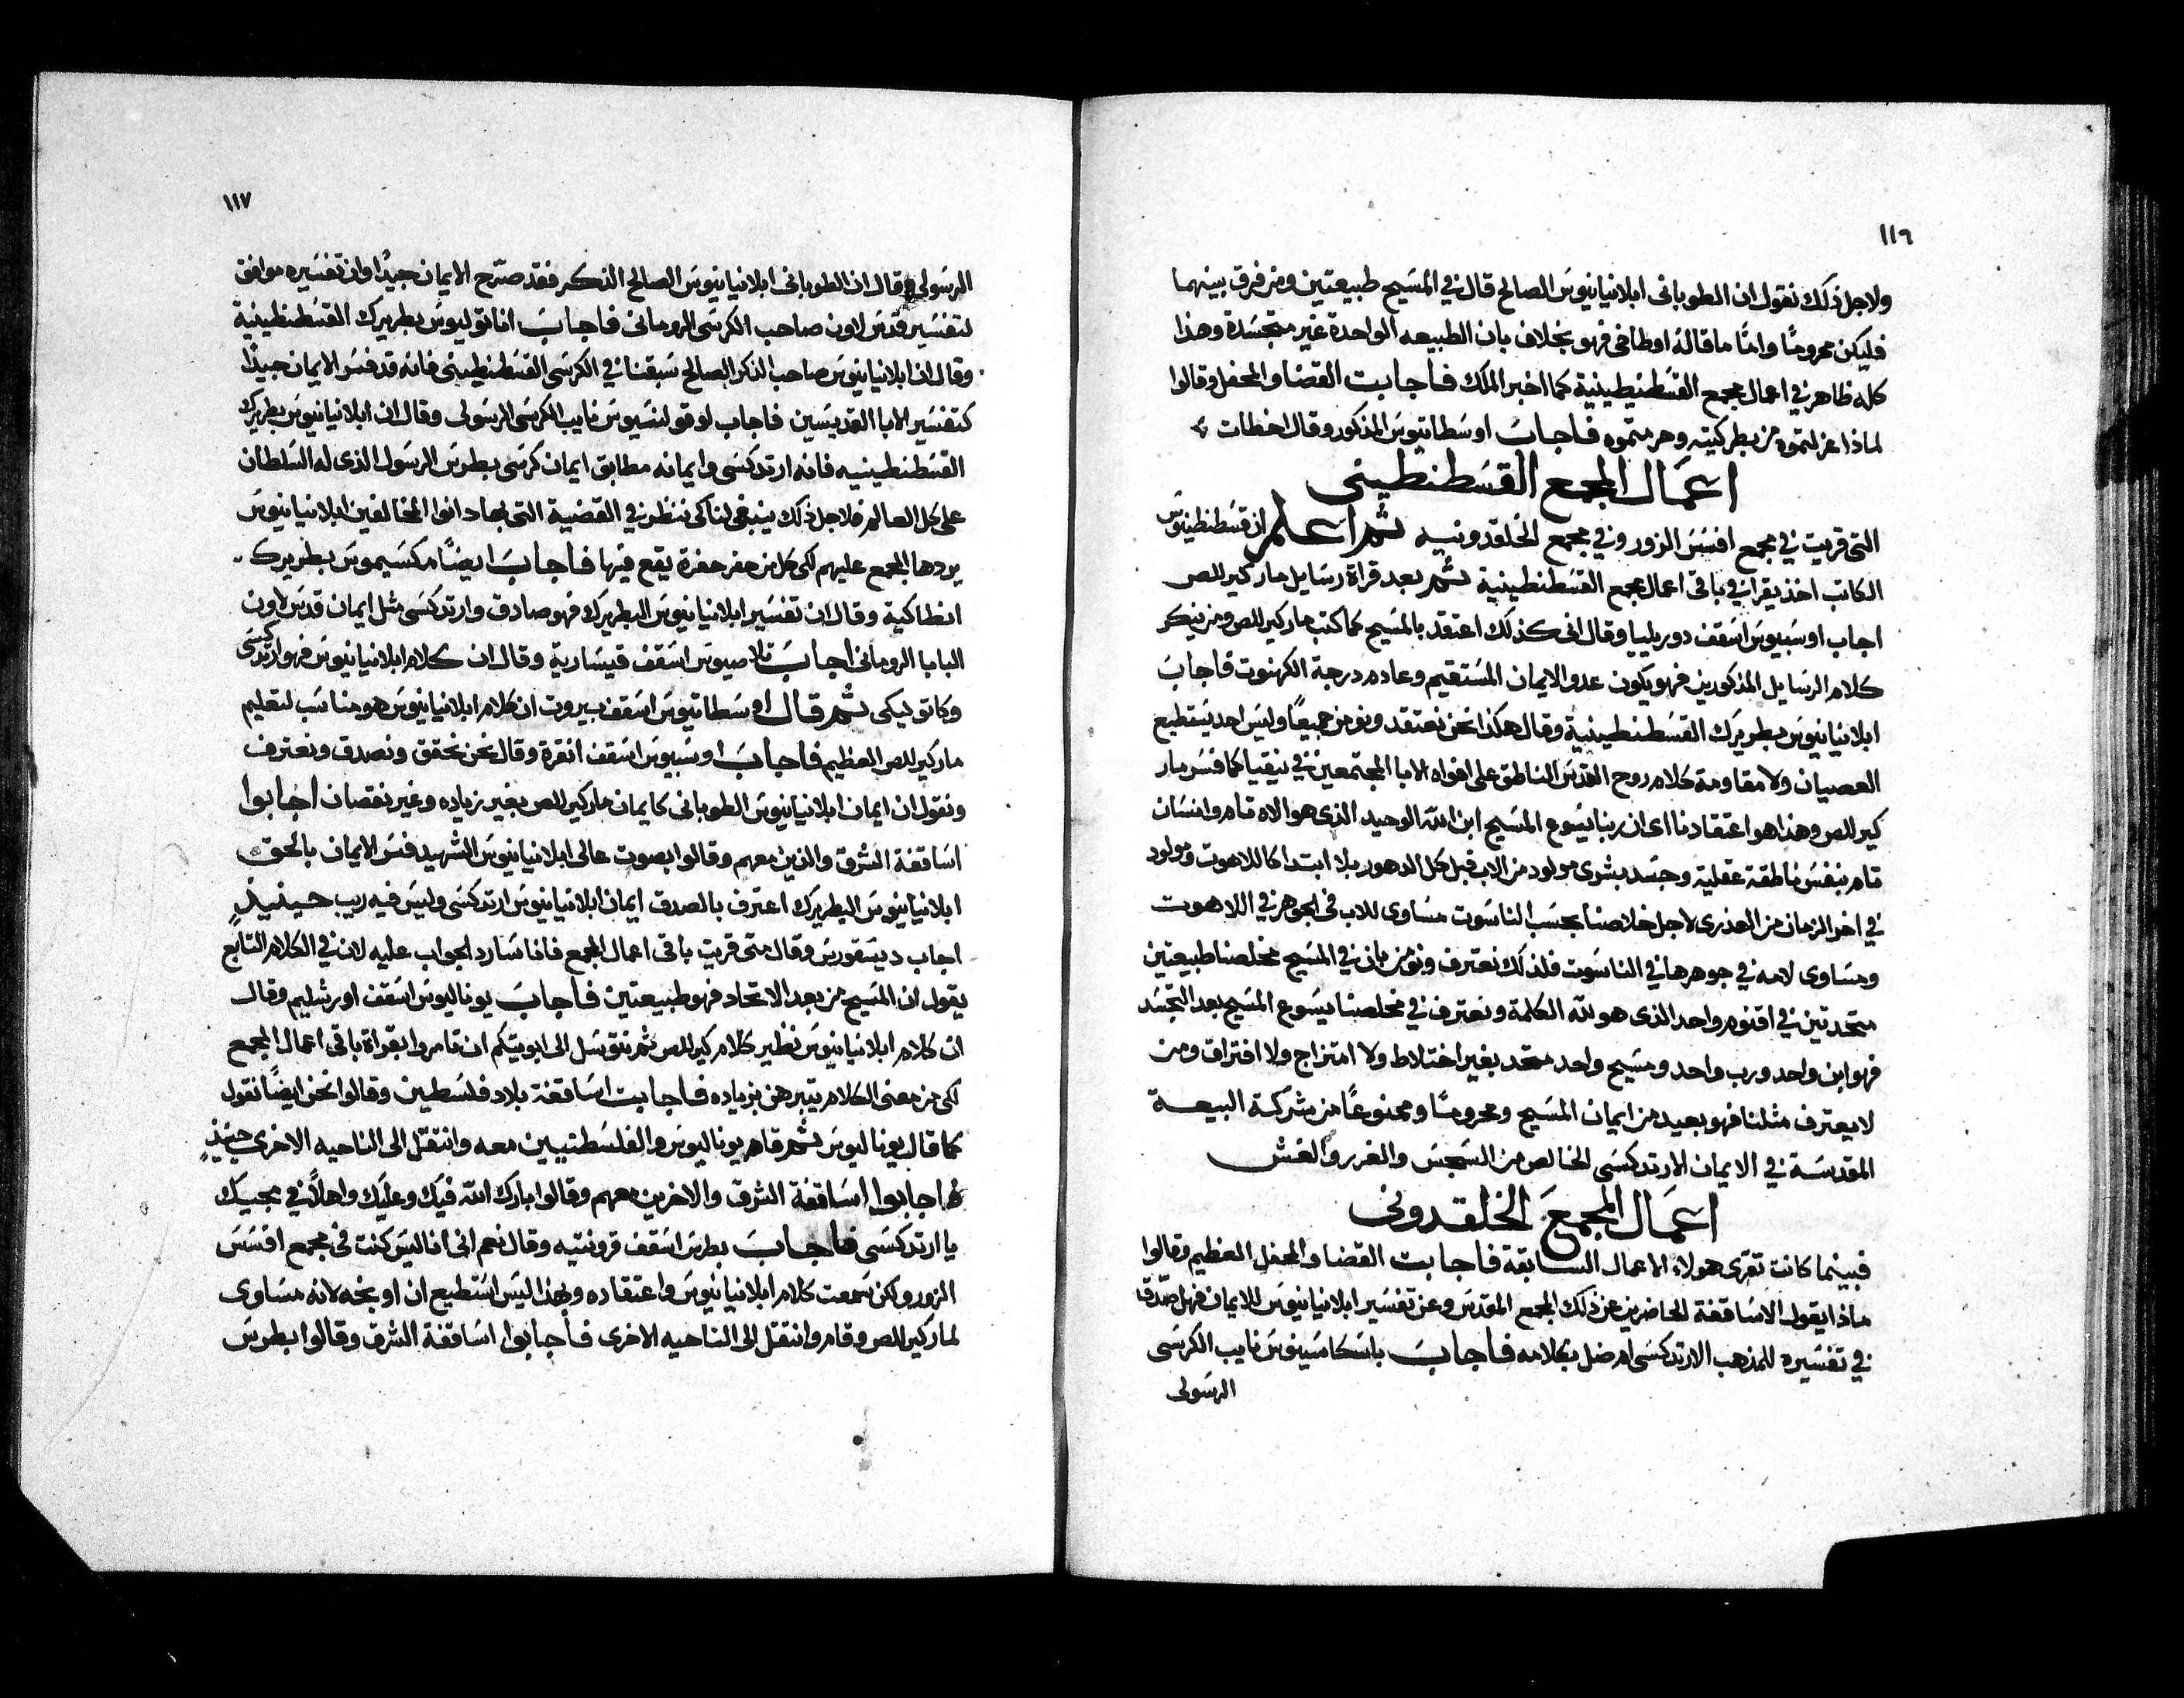 ١١٦
ولاجل ذلك نقول ان الطوبانى ابلانيانيوس الصالح قال في المسيح طبيعتين ومن فرق بينهما
فليكن محرومًا وامًا ما قاله اوطاخى فهو بخلاف بان الطبيعه الواحدة غير متجسدة وهذا
كله ظاهر في اعمال مجمع القسطنطينية كما اخبر الملك فاجابت القضاه والمحفل وقالوا
لماذا عزلتموه من بطركيته وحرمتموه فاجاب اوسطاتيوس المذكور وقال اخطات
اعمال المجمع القسطنطينى
التى قريت في مجمع افسس الزور وفي مجمع الخلقدونيه ثم اعلم ان قسطنطينوس
الكاتب اخذ يقرا في باقى اعمال مجمع القسطنطينية ثم بعد قراة رسايل مار كيرللص
اجاب اوسبيوس اسقف دوريليا وقال انى كذلك اعتقد بالمسيح كما كتب مار كيرللص ومن ينكر
كلام الرسايل المذكورين فهو يكون عدو الايمان المستقيم وعادم درجة الكهنوت فاجاب
ابلانيانيوس بطريرك القسطنطينية وقال هكذا نحن نعتقد ونومن جميعًا وليس احد يستطيع
العصيان ولا مقاومة كلام روح القدس الناطق على افواه الابا المجتمعين في نيقيا كما فسر مار
كيرللص وهذا هو اعتقادنا اى ان ربنا يسوع المسيح ابن الله الوحيد الذى هو الاه تام وانسان
تام بنفس ناطقة عقلية وجسد بشرى مولود من الاب قبل كل الدهور بلا ابتدا كاللاهوت ومولود
في اخر الزمان من العذرى لاجل خلاصنا بحسب الناسوت مساوى للاب فى الجوهر في اللاهوت
ومساوى لامه في جوهرها في الناسوت فلذلك نعترف ونومن بان في المسيح مخلصنا طبيعتين
متحدتين في اقنوم واحد الذى هو لله الكلمة ونعترف في مخلصنا يسوع المسيح بعد التجسد
فهو ابن واحد ورب واحد ومسيح واحد متحد بغير اختلاط ولا امتزاج ولا افتراق ومن
لا يعترف مثلنا فهو بعيد من ايمان المسيح ومحرومًا وممنوعًا من شركة البيعة
المقدسة في الايمان الارتدكسى الخالص من السجس والغرر والغش
اعمال المجمع الخلقدونى
فبينما كانت تقرى هولاء الاعمال السابقة فاجابت القضاه والمحفل العظيم وقالوا
ماذا يقول الاساقفة الحاضرين عن ذلك المجمع المقدس وعن تفسير ابلانيانيوس للايمان فهل صدق
في تفسيره للمذهب الارتدكسى ام ضل بكلامه فاجاب باسكاسينوس نايب الكرسى
الرسولى
١١٧
الرسولى وقال ان الطوبانى ابلانيانيوس الصالح الذكر فقد صرح الايمان جيدًا وان تفسيره موافق
لتفسير قدس لاون صاحب الكرسى الرومانى فاجاب اناتوليوس بطريرك القسطنطينية
وقال ان ابلانيانيوس صاحب الذكر الصالح سبقنا في الكرسى القسطنطينى فانه قد فسر الايمان جيدًا
كتفسير الابا القديسين فاجاب لوقولنسيوس نايب الكرسى الرسولى وقال ان ابلانيانيوس بطريرك
القسطنطينيه فانه ارتدكسى وايمانه مطابق ايمان كرسى بطرس الرسول الذى له السلطان
على كل العالم فلاجل ذلك ينبغى لنا كى ننظر في القضية التى بها دانوا المخالفين ابلانيانيوس
يردها المجمع عليهم لكى كل من حفر حفرة يقع فيها فاجاب ايضًا مكسيموس بطريرك
انطاكية وقال ان تفسير ابلانيانيوس البطريرك فهو صادق وارتدكسى مثل ايمان قدس لاون
البابا الرومانى اجاب تلاصيوس اسقف قيسارية وقال ان كلام ابلانيانيوس فهو ارتدكسى
وكاتوليكى ثم قال اوسطاتيوس اسقف بيروت ان كلام ابلانيانيوس هو مناسب لتعليم
مار كيرللص العظيم فاجاب اوسبيوس اسقف انقرة وقال نحن نحقق ونصدق ونعترف
ونقول ان ايمان ابلانيانيوس الطوبانى كايمان مار كيرللص بغير زياده وغير نقصان اجابوا
اساقفة الشرق والذين معهم وقالوا بصوت عالى ابلانيانيوس الشهيد فسر الايمان بالحق
ابلانيانيوس البطريرك اعترف بالصدق ايمان ابلانيانيوس ارتدكسى وليس فيه ريب حينيذٍ
اجاب ديسقورس وقال متى قريت باقى اعمال المجمع فانا سارد الجواب عليه لان في الكلام التابع
يقول ان المسيح من بعد الاتحاد فهو طبيعتين فاجاب يوناليوس اسقف اورشليم وقال
ان كلام ابلانيانيوس نظير كلام كيرللص ثم نتوسل الى ابوتيكم ان تامروا بقراة باقى اعمال المجمع
لكى من معنى الكلام يتبرهن بزياده فاجابت اساقفة بلاد فلسطين وقالوا نحن ايضًا نقول
كما قال يوناليوس ثم قام يوناليوس والفلسطنيين معه وانتقل الى الناحيه الاخرى حينيذٍ
اجابوا اساقفة الشرق والاخرين معهم وقالوا بارك الله فيك وعليك واهلاً في مجيك
يا ارتدكسى فاجاب بطرس اسقف قرونتيه وقال نعم انى انا ليس كنت فى مجمع افسس
الزور ولكن سمعت كلام ابلانيانيوس واعتقاده وبهذا ليس استطيع ان اوبخه لانه مساوى
لمار كيرللص وقام وانتقل الى الناحيه الاخرى فاجابوا اساقفة الشرق وقالوا بطرس